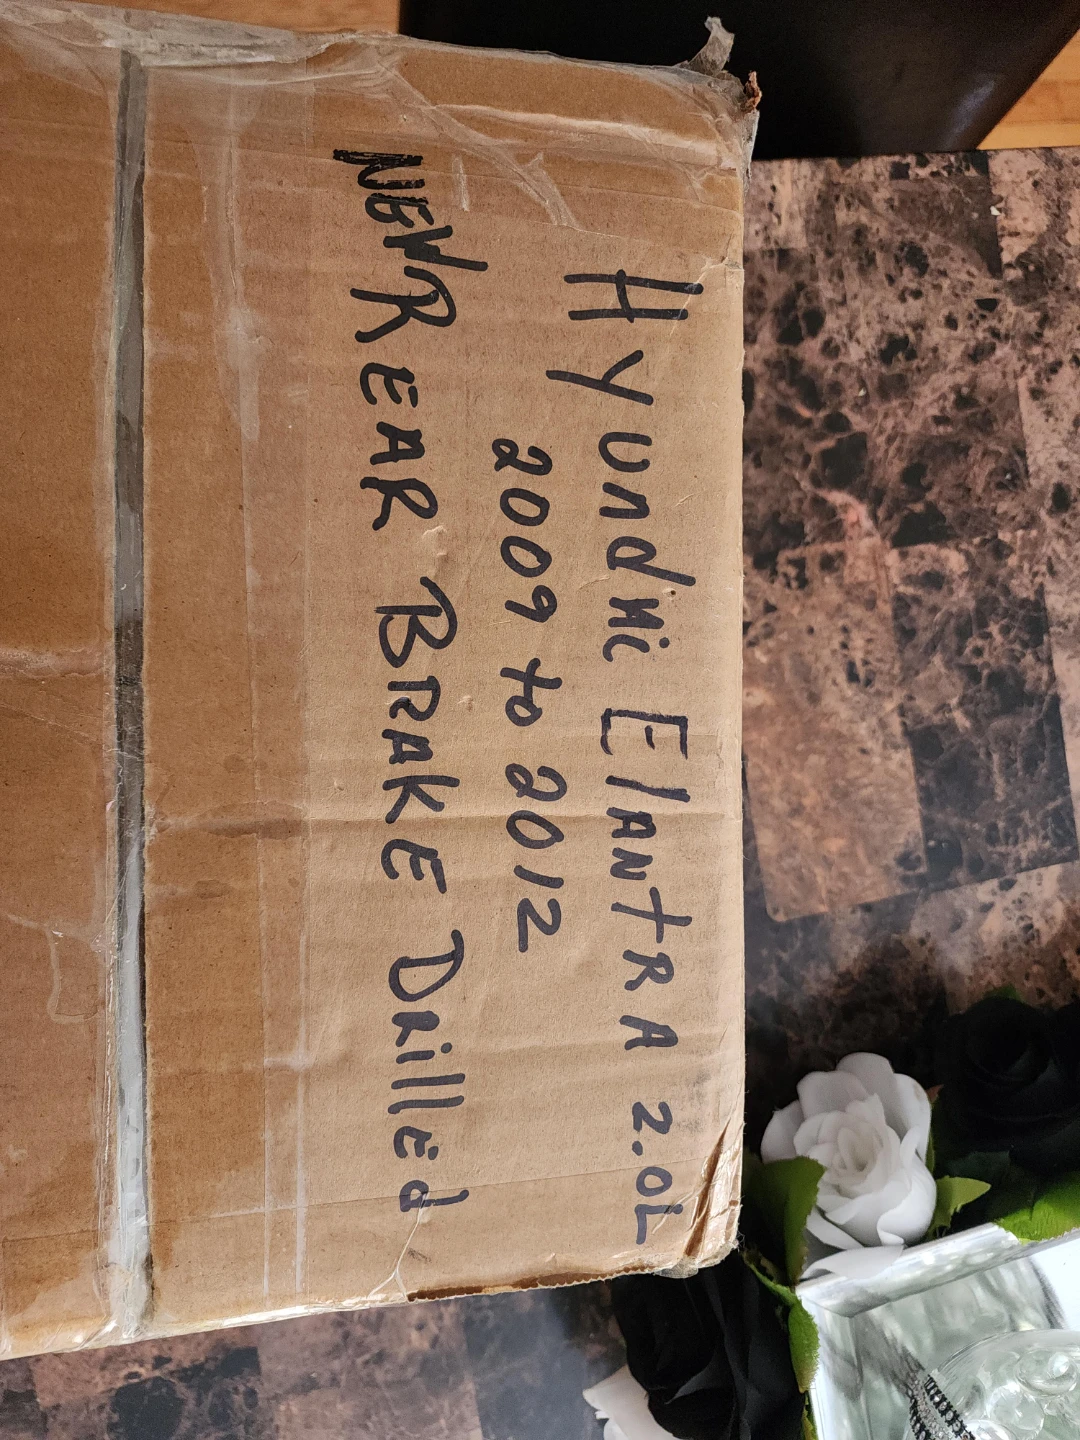 Hyundai Elantra 2.0L
2009 to 2012
NEW REAR BRAKE Drilled